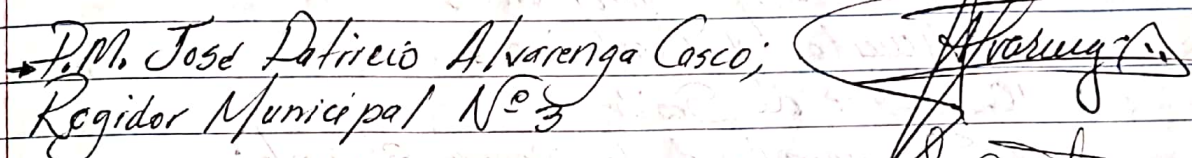 P.M. José Patricio Alvarenga Casco;
Regidor Municipal Nº 3